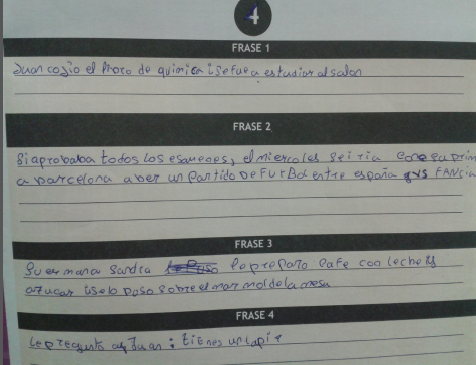 4
FRASE 1
Juan cogio el livro de quimica isefue a estudiar al salon
FRASE 2
Si aprobaba todos Los esamenes, el miercoles seiria con su prim
a barcelona aber un Partido De FuTBol entre españa FANSIA
FRASE 3
Su ermana sandra lepreparo cafe con leche
azucar iselo puso sobre el marmol de la mesa
FRASE 4
Le pregunto a Juan : tienes un lapiz